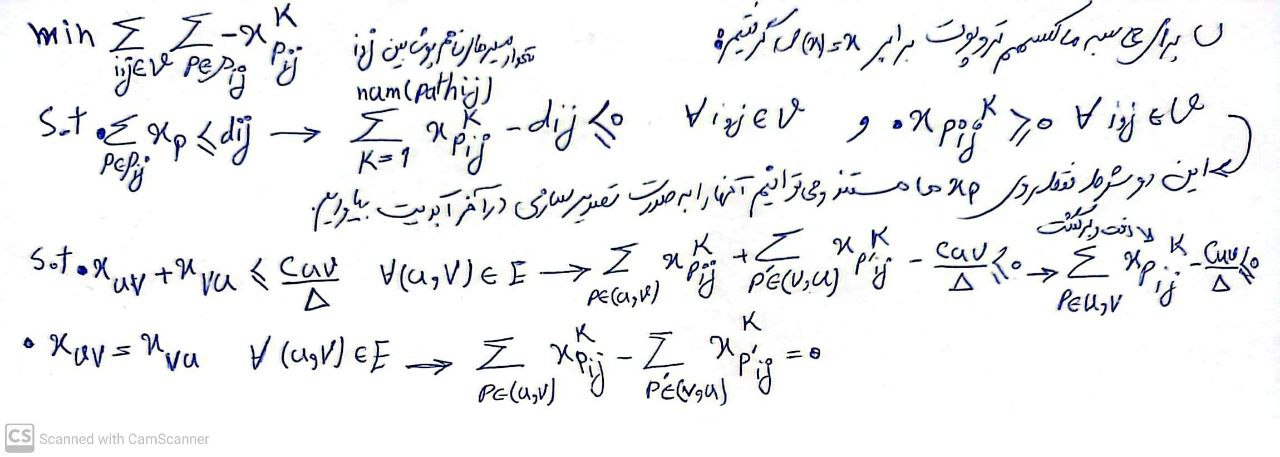 برای محاسبه ماکسیمم تروپوت برابر U(x)=x گرفتیم:
min Σ_{i,j∈V} Σ_{P∈P_ij} -x^K_{P_ij}
تعداد مسیرهای بین i و j
num(path ij)
S.t • Σ_{P∈P_ij} x_P ≤ d_ij → Σ_{K=1} x^K_{P_ij} - d_ij ≤ 0 ∀ i,j ∈ V و • x^K_{P_ij} ≥ 0 ∀ i,j ∈ V
این دو شرط فقط روی x_P ها هستند و می توانیم آنها را به صورت تصویر سازی در آخر آپدیت بیاوریم.
رفت و برگشت
S.t • x_uv + x_vu ≤ C_uv/Δ ∀(u,v) ∈ E → Σ_{P∈(u,v)} x^K_{P_ij} + Σ_{P'∈(v,u)} x^K_{P'_ij} - C_uv/Δ ≤ 0 → Σ_{P∈u,v} x^K_{P_ij} - C_uv/Δ ≤ 0
• x_uv = x_vu ∀ (u,v) ∈ E → Σ_{P∈(u,v)} x^K_{P_ij} - Σ_{P'∈(v,u)} x^K_{P'_ij} = 0
CS Scanned with CamScanner